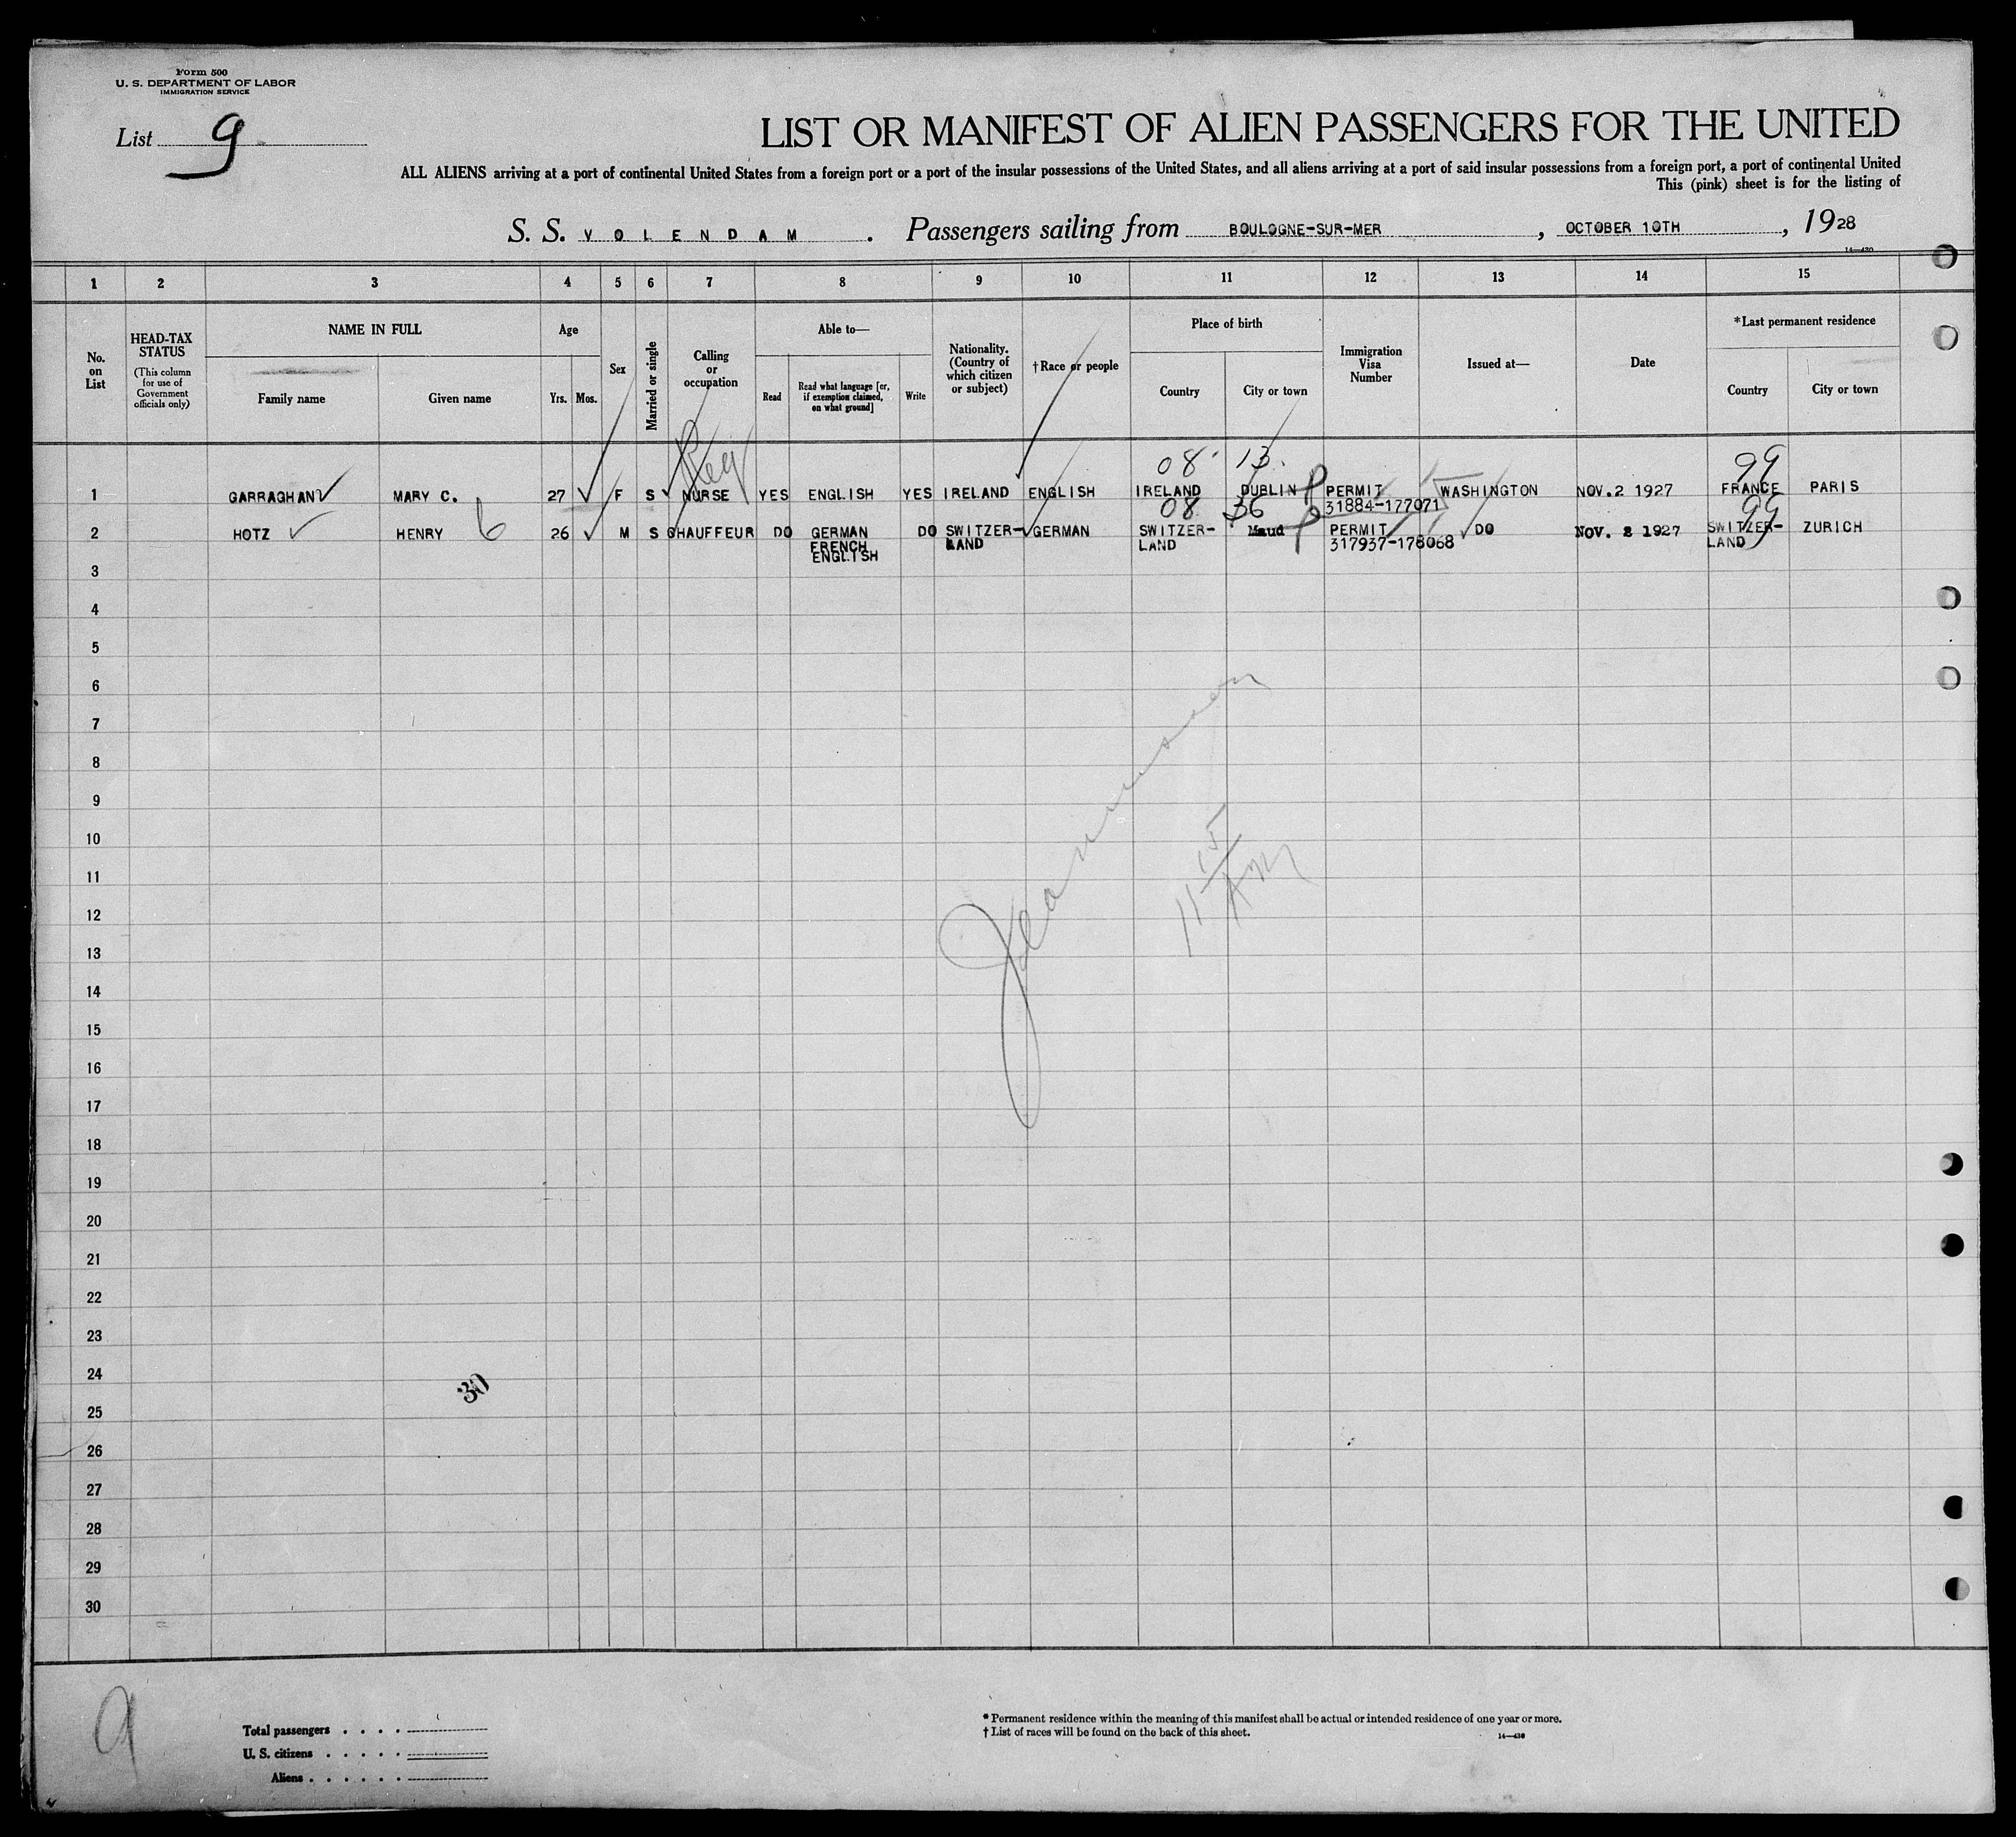 Form 500
U. S. DEPARTMENT OF LABOR
IMMIGRATION SERVICE
List 9
LIST OR MANIFEST OF ALIEN PASSENGERS FOR THE UNITED
ALL ALIENS arriving at a port of continental United States from a foreign port or a port of the insular possessions of the United States, and all aliens arriving at a port of said insular possessions from a foreign port, a port of continental United
This (pink) sheet is for the listing of
S. S. VOLENDAM . Passengers sailing from BOULOGNE-SUR-MER , OCTOBER 10TH , 1928
14—430
1 2 3 4 5 6 7 8 9 10 11 12 13 14 15
No. on List
HEAD-TAX STATUS
(This column for use of Government officials only)
NAME IN FULL
Family name
Given name
Age
Yrs.
Mos.
Sex
Married or single
Calling or occupation
Able to—
Read
Read what language [or, if exemption claimed, on what ground]
Write
Nationality. (Country of which citizen or subject)
†Race or people
Place of birth
Country
City or town
Immigration Visa Number
Issued at—
Date
*Last permanent residence
Country
City or town
08 13 99
1 GARRAGHAN MARY C. 27 F S NURSE YES ENGLISH YES IRELAND ENGLISH IRELAND DUBLIN PERMIT WASHINGTON NOV.2 1927 FRANCE PARIS
08 36 31884-177071 99
2 HOTZ HENRY 26 M S CHAUFFEUR DO GERMAN DO SWITZER- GERMAN SWITZER- Maud PERMIT DO NOV. 2 1927 SWITZER- ZURICH
FRENCH LAND LAND 317937-178068 LAND
ENGLISH
3
4
5
6
7
8
9
10
11
12
13
14
15
16
17
18
19
20
21
22
23
24
30
25
26
27
28
29
30
11 15 AM
9
Total passengers . . . .
U. S. citizens . . . . .
Aliens . . . . . .
* Permanent residence within the meaning of this manifest shall be actual or intended residence of one year or more.
† List of races will be found on the back of this sheet.
14—430